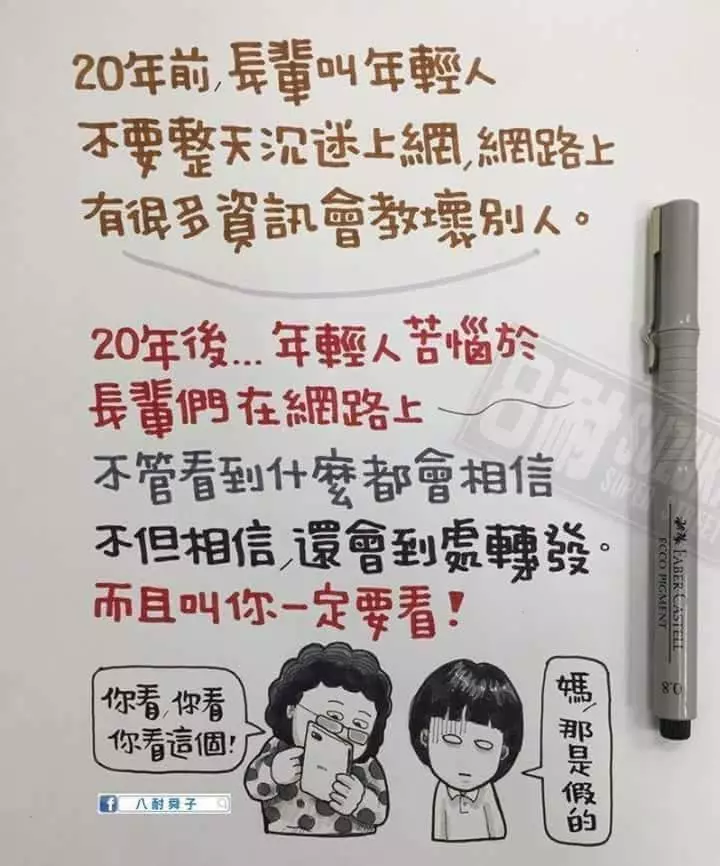 20年前,長輩叫年輕人
不要整天沉迷上網,網路上
有很多資訊會教壞別人。
20年後...年輕人苦惱於
長輩們在網路上
不管看到什麼都會相信
不但相信,還會到處轉發。
而且叫你一定要看!
你看,你看
你看這個!
媽,那是假的
八耐舜子
FABER-CASTELL
ECCO PIGMENT
0.8